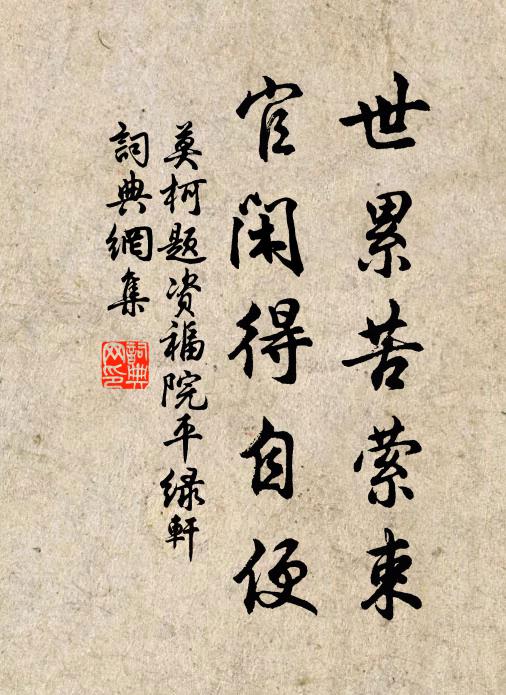 世累苦萦束
官闲得自便
莫柯题资福院平绿轩
詞典網集
詞典网印